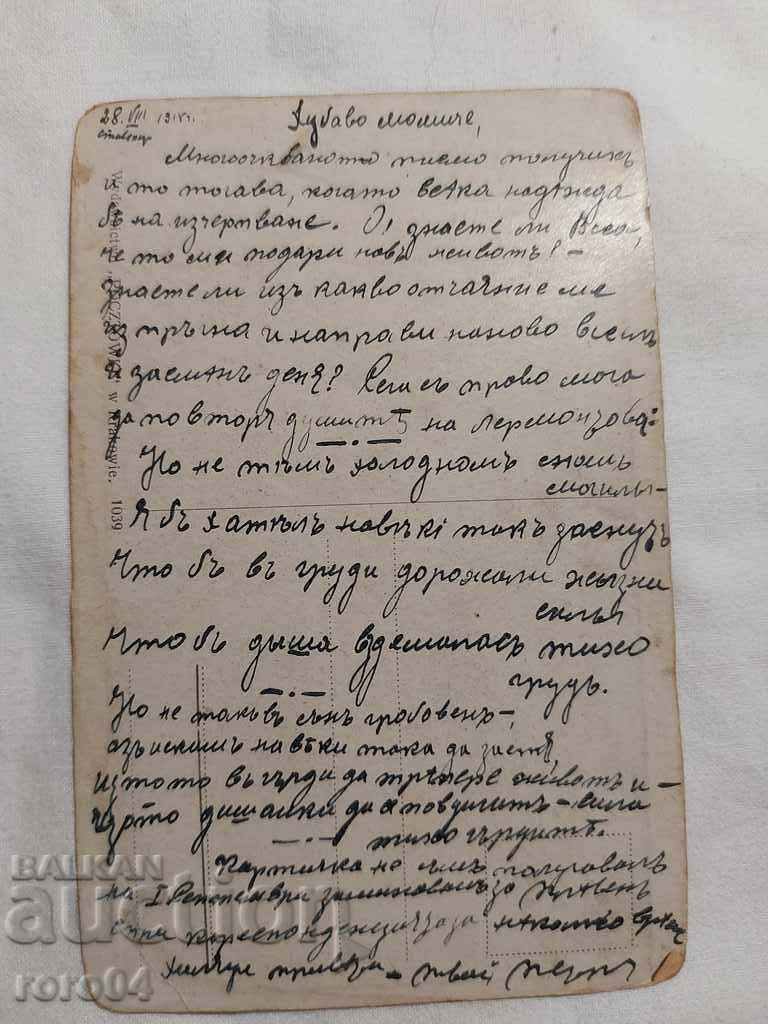 28. VIII 191 г.
Хубаво момиче,
Многоочкваното писмо получихъ
и то тогава, когато всяка надежда
бѣ на изчерпване. О! знаете ли
че то ми подари новъ животъ! –
знаете ли изъ какво отчаяние ме
изтръгна и направи наново веселъ
и засмянъ деня? Сега съ право мога
да повторя думитѣ на Лермонтова:
Но не тѣмъ холоднымъ сномъ
могилы –
Я бъ хатѣлъ навѣкі такъ заснуть
Что бъ въ груди дорожали жызни
силы
Что бъ дыша вздемалась тихо
грудь.
Но не такъвъ сънъ гробовенъ –,
азъ искамъ на вѣки така да заспя,
щото въ гърди да трѣпере животъ и –
щото дишайки да повдигатъ – сила
тихо гърдитѣ.
Картичка не съмъ получавалъ
на I Септемврий заминавамъ за Плѣвенъ
кореспонденция за няколко време
– твой
Wydawnictwo w Krakowie. 1039
BALKAN
auction
roro04